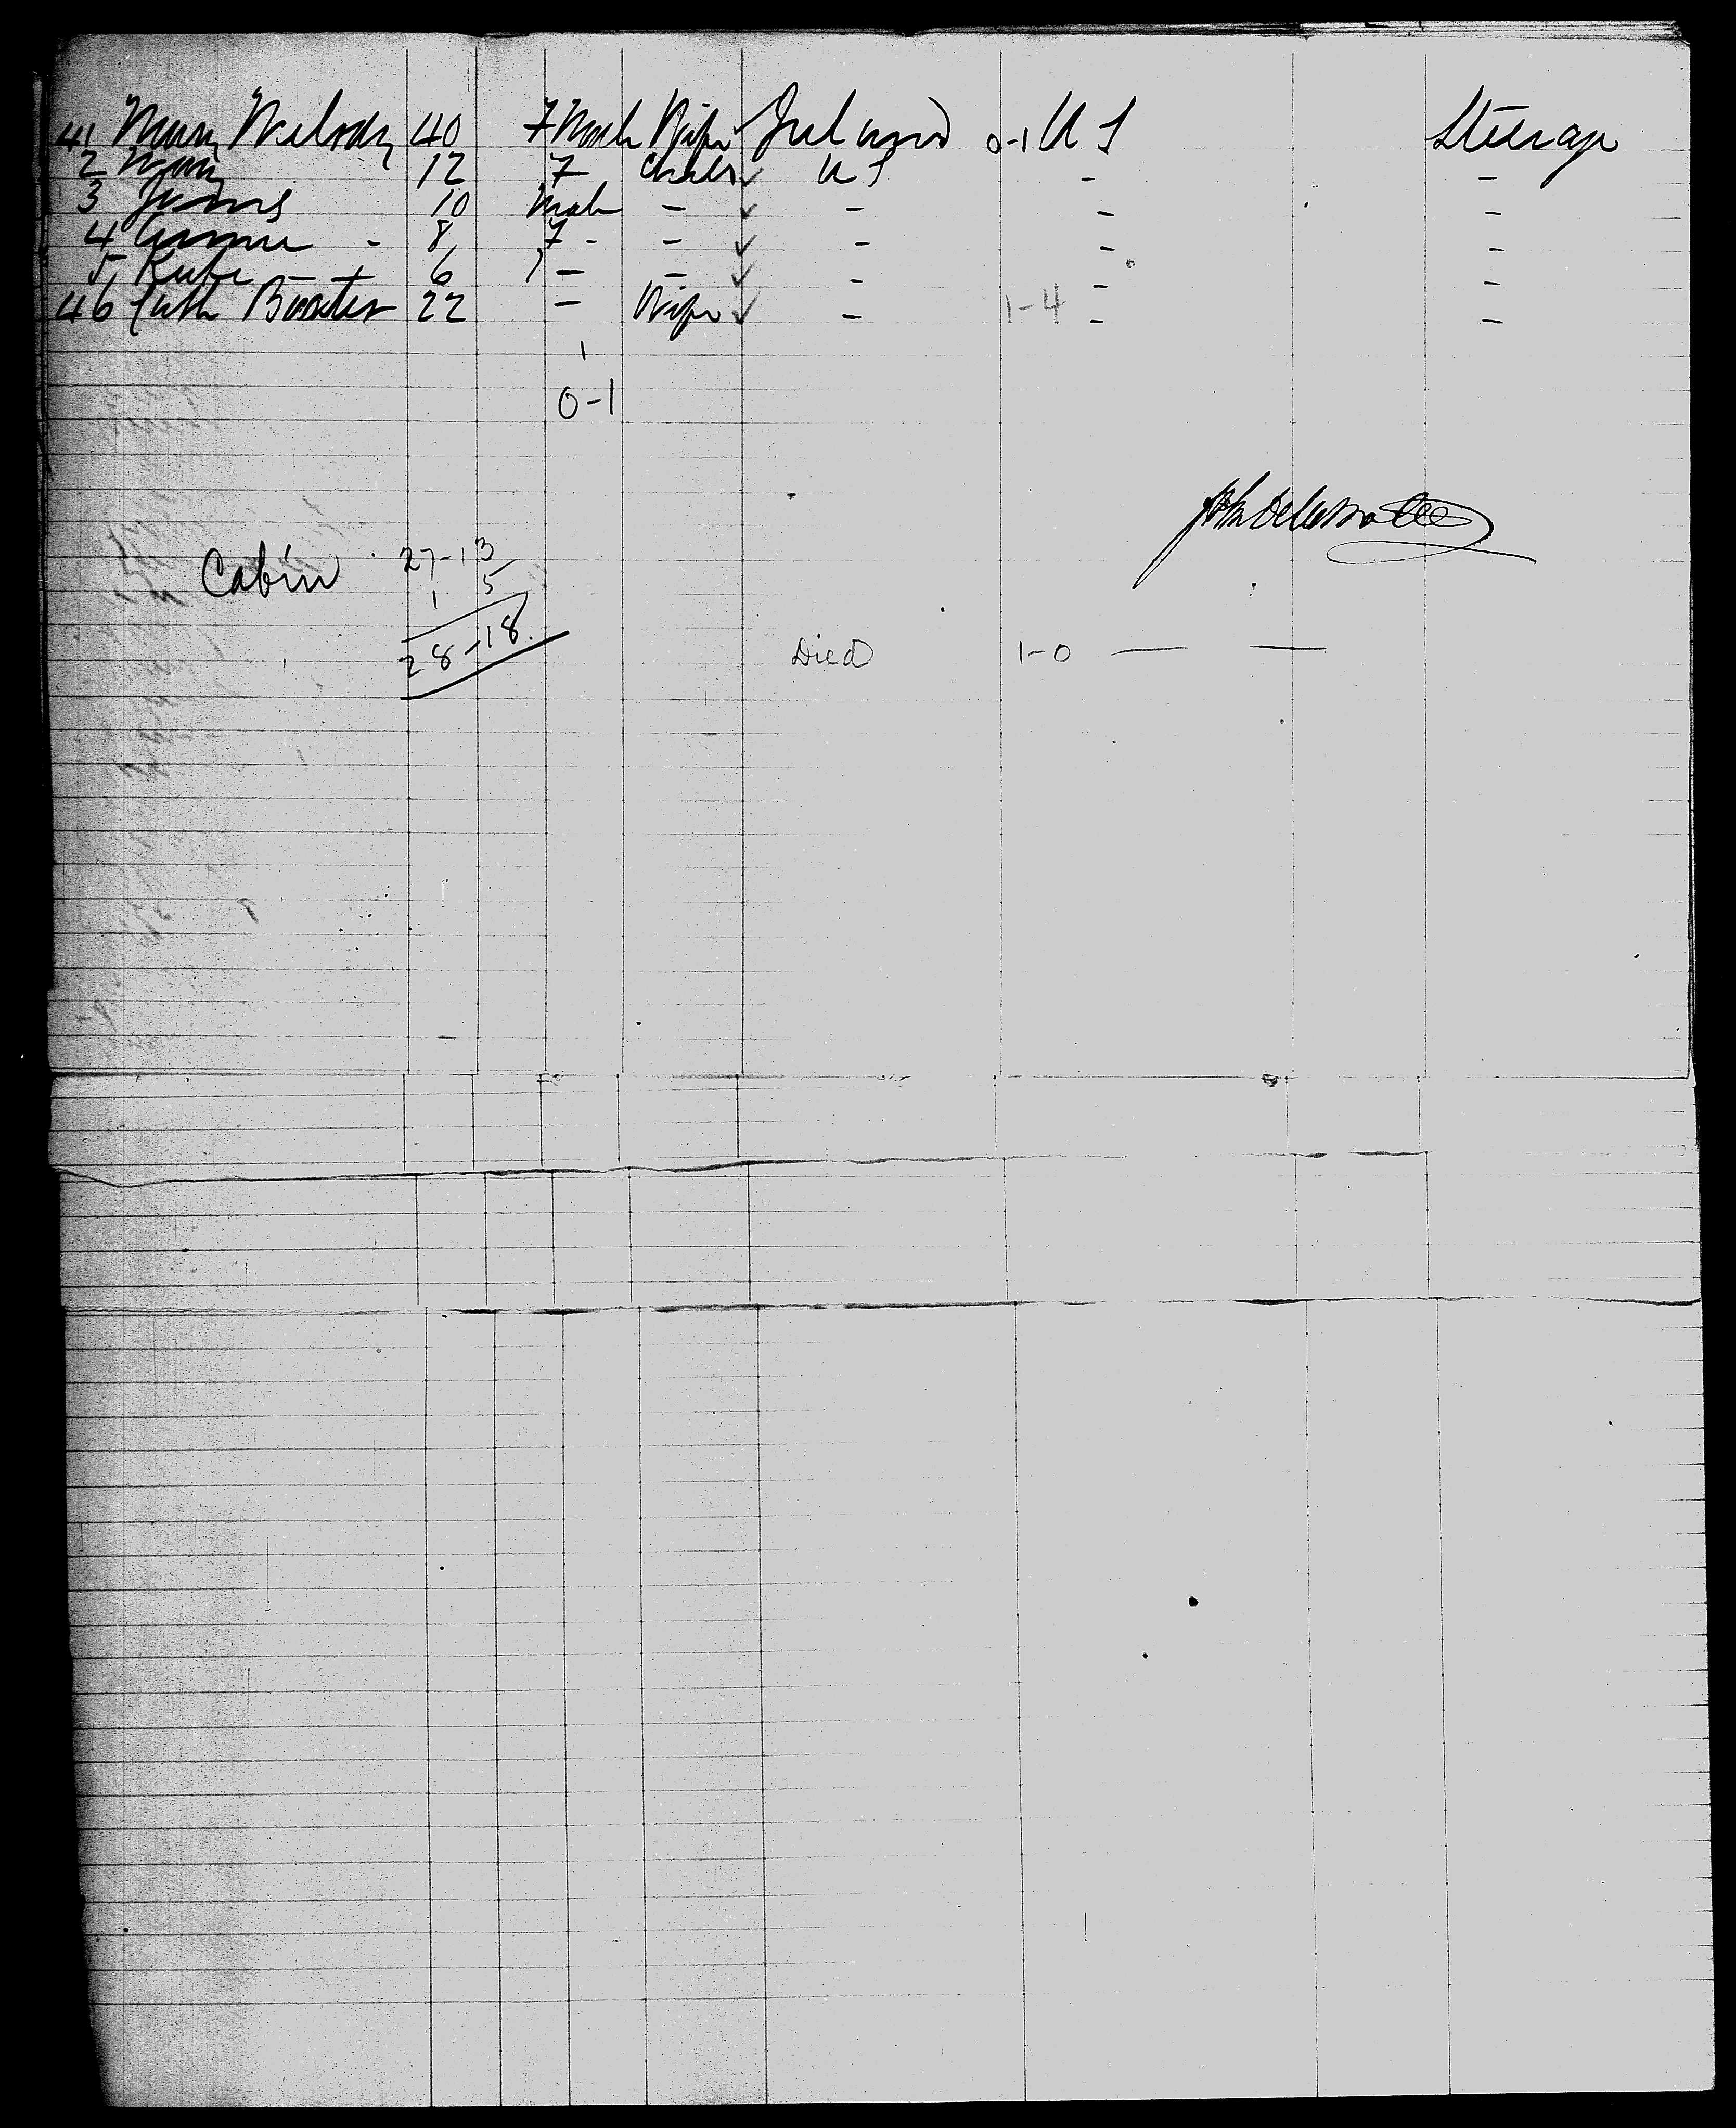 41 Mary Melody 40 F Male Wife ✓ Ireland 0-1 U S Steerage
2 Mary 12 F Child ✓ U S - -
3 James 10 Male - ✓ - - -
4 Annie - 8 F - - ✓ - - -
5 Kate - + 6 - - ✓ - - -
46 Cath 22 - Wife ✓ - 1-4 - -
0-1
Cabin 27-13
1 5
28-18.
Died 1-0 — —